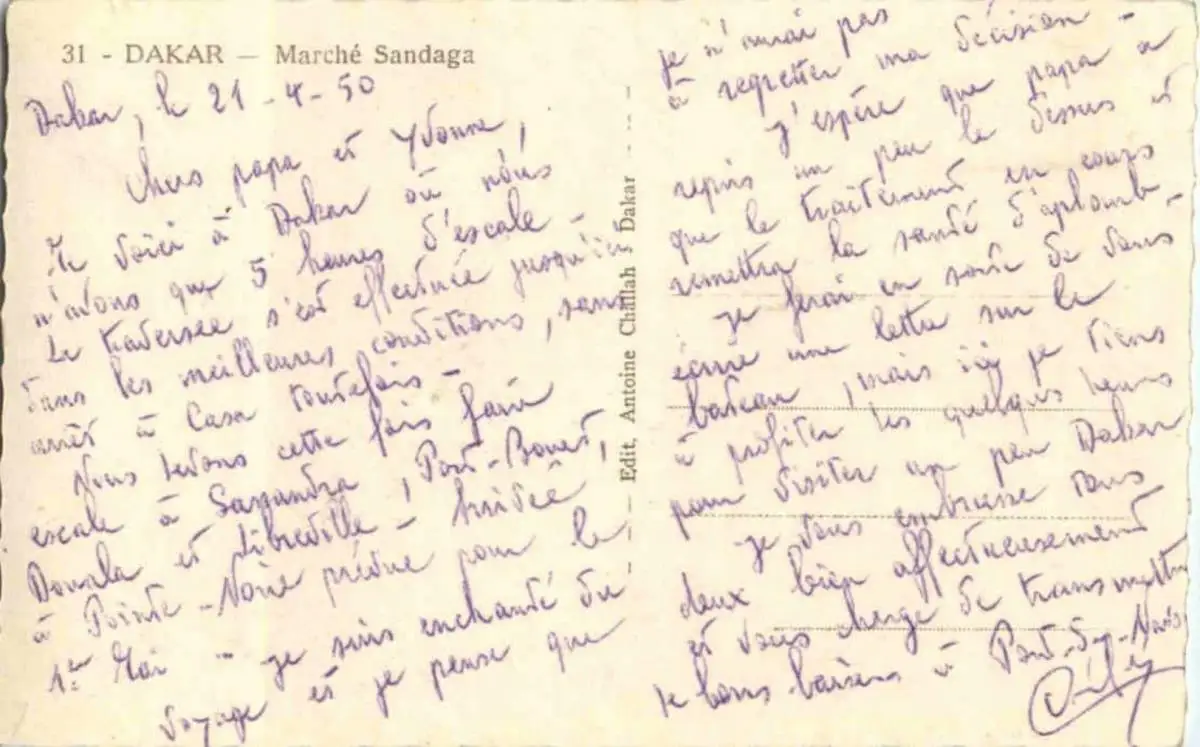 31 - DAKAR — Marché Sandaga
Dakar, le 21-4-50
Chers papa et Yvonne,
Me voici à Dakar où nous
n'avons que 5 heures d'escale -
La traversée s'est effectuée jusqu'ici
dans les meilleures conditions, sans
arrêt à Casa toutefois -
Nous devons cette fois faire
escale à Sassandra, Port-Bouet,
Douala et Libreville - Arrivée
à Pointe-Noire prévue pour le
1er Mai - je suis enchanté du
voyage et je pense que
Edit. Antoine Challah - Dakar
je n'aurai pas
à regretter ma décision -
J'espère que papa a
repris un peu le dessus et
que le traitement en cours
remettra la santé d'aplomb -
je ferai en sorte de vous
écrire une lettre sur le
bateau, mais ici je tiens
à profiter les quelques heures
pour visiter un peu Dakar
je vous embrasse tous
deux bien affectueusement
et vous charge de transmettre
de bons baisers à